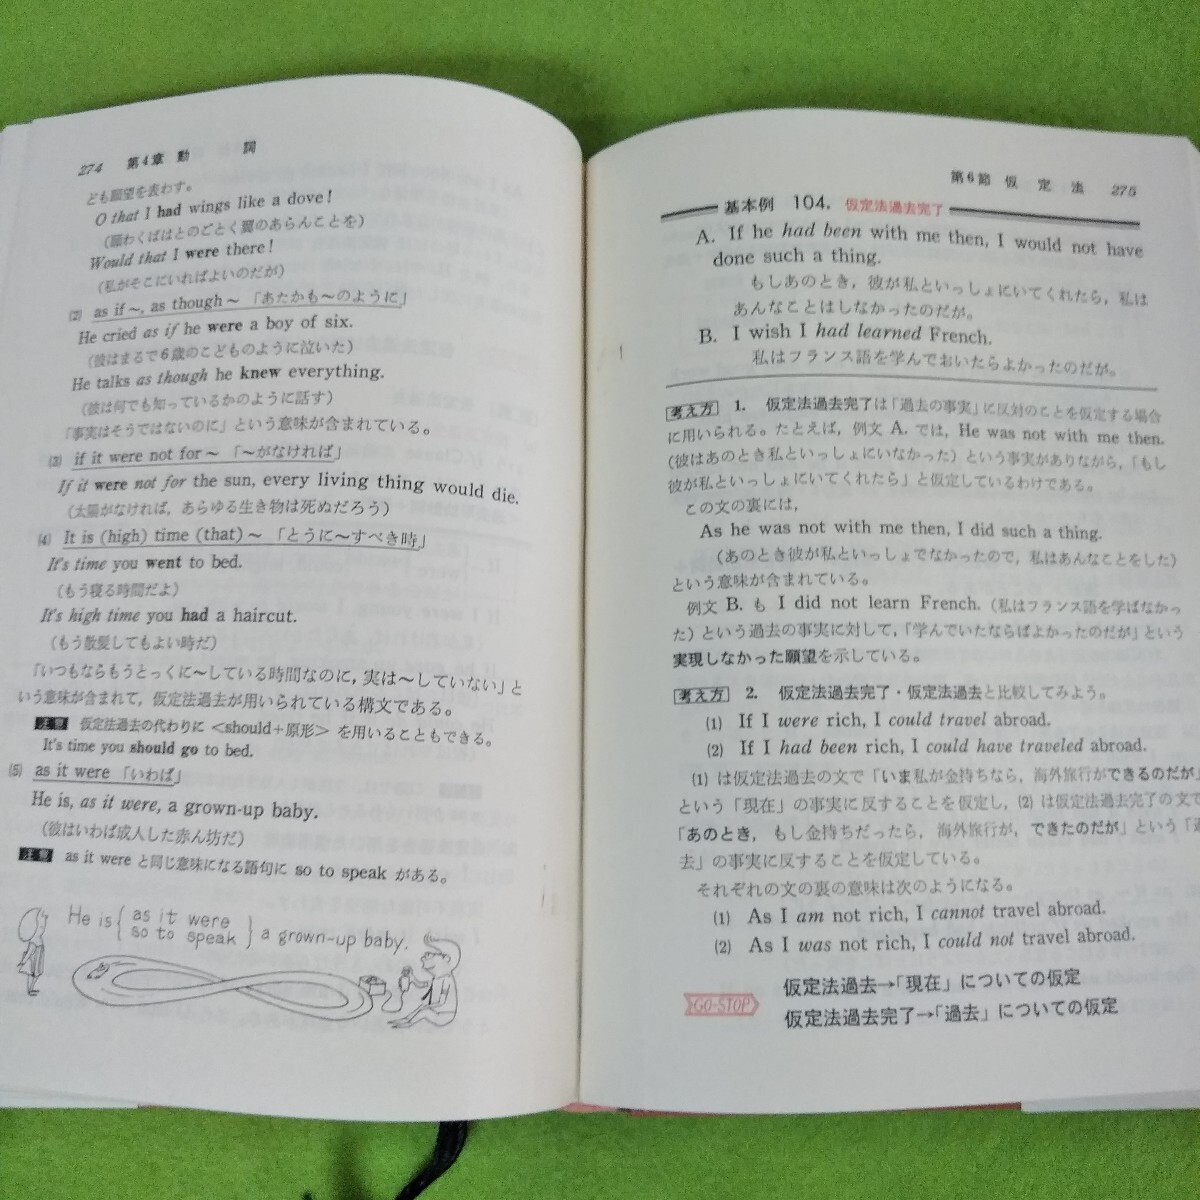 274 第4章 動 詞
ども願望を表わす。
O that I had wings like a dove!
(願わくばはとのごとく翼のあらんことを)
Would that I were there!
(私がそこにいればよいのだが)
(2) as if～, as though～ 「あたかも～のように」
He cried as if he were a boy of six.
(彼はまるで6歳のこどものように泣いた)
He talks as though he knew everything.
(彼は何でも知っているかのように話す)
「事実はそうではないのに」という意味が含まれている。
(3) if it were not for～ 「～がなければ」
If it were not for the sun, every living thing would die.
(太陽がなければ, あらゆる生き物は死ぬだろう)
(4) It is (high) time (that)～ 「とうに～すべき時」
It's time you went to bed.
(もう寝る時間だよ)
It's high time you had a haircut.
(もう散髪してもよい時だ)
「いつもならもうとっくに～している時間なのに, 実は～していない」と
いう意味が含まれて, 仮定法過去が用いられている構文である。
注意 仮定法過去の代わりに <should+原形> を用いることもできる。
It's time you should go to bed.
(5) as it were 「いわば」
He is, as it were, a grown-up baby.
(彼はいわば成人した赤ん坊だ)
注意 as it were と同じ意味になる語句に so to speak がある。
He is { as it were
so to speak } a grown-up baby.
第6節 仮 定 法 275
基本例 104. 仮定法過去完了
A. If he had been with me then, I would not have
done such a thing.
もしあのとき, 彼が私といっしょにいてくれたら, 私は
あんなことはしなかったのだが。
B. I wish I had learned French.
私はフランス語を学んでおいたらよかったのだが。
考え方 1. 仮定法過去完了は「過去の事実」に反対のことを仮定する場合
に用いられる。たとえば, 例文 A. では, He was not with me then.
(彼はあのとき私といっしょにいなかった) という事実がありながら, 「もし
彼が私といっしょにいてくれたら」と仮定しているわけである。
この文の裏には,
As he was not with me then, I did such a thing.
(あのとき彼が私といっしょでなかったので, 私はあんなことをした)
という意味が含まれている。
例文 B. も I did not learn French. (私はフランス語を学ばなかっ
た) という過去の事実に対して, 「学んでいたならばよかったのだが」という
実現しなかった願望を示している。
考え方 2. 仮定法過去完了・仮定法過去と比較してみよう。
(1) If I were rich, I could travel abroad.
(2) If I had been rich, I could have traveled abroad.
(1) は仮定法過去の文で「いま私が金持ちなら, 海外旅行ができるのだが」
という「現在」の事実に反することを仮定し, (2) は仮定法過去完了の文で
「あのとき, もし金持ちだったら, 海外旅行が, できたのだが」という「過
去」の事実に反することを仮定している。
それぞれの文の裏の意味は次のようになる。
(1) As I am not rich, I cannot travel abroad.
(2) As I was not rich, I could not travel abroad.
GO-STOP
仮定法過去→「現在」についての仮定
仮定法過去完了→「過去」についての仮定